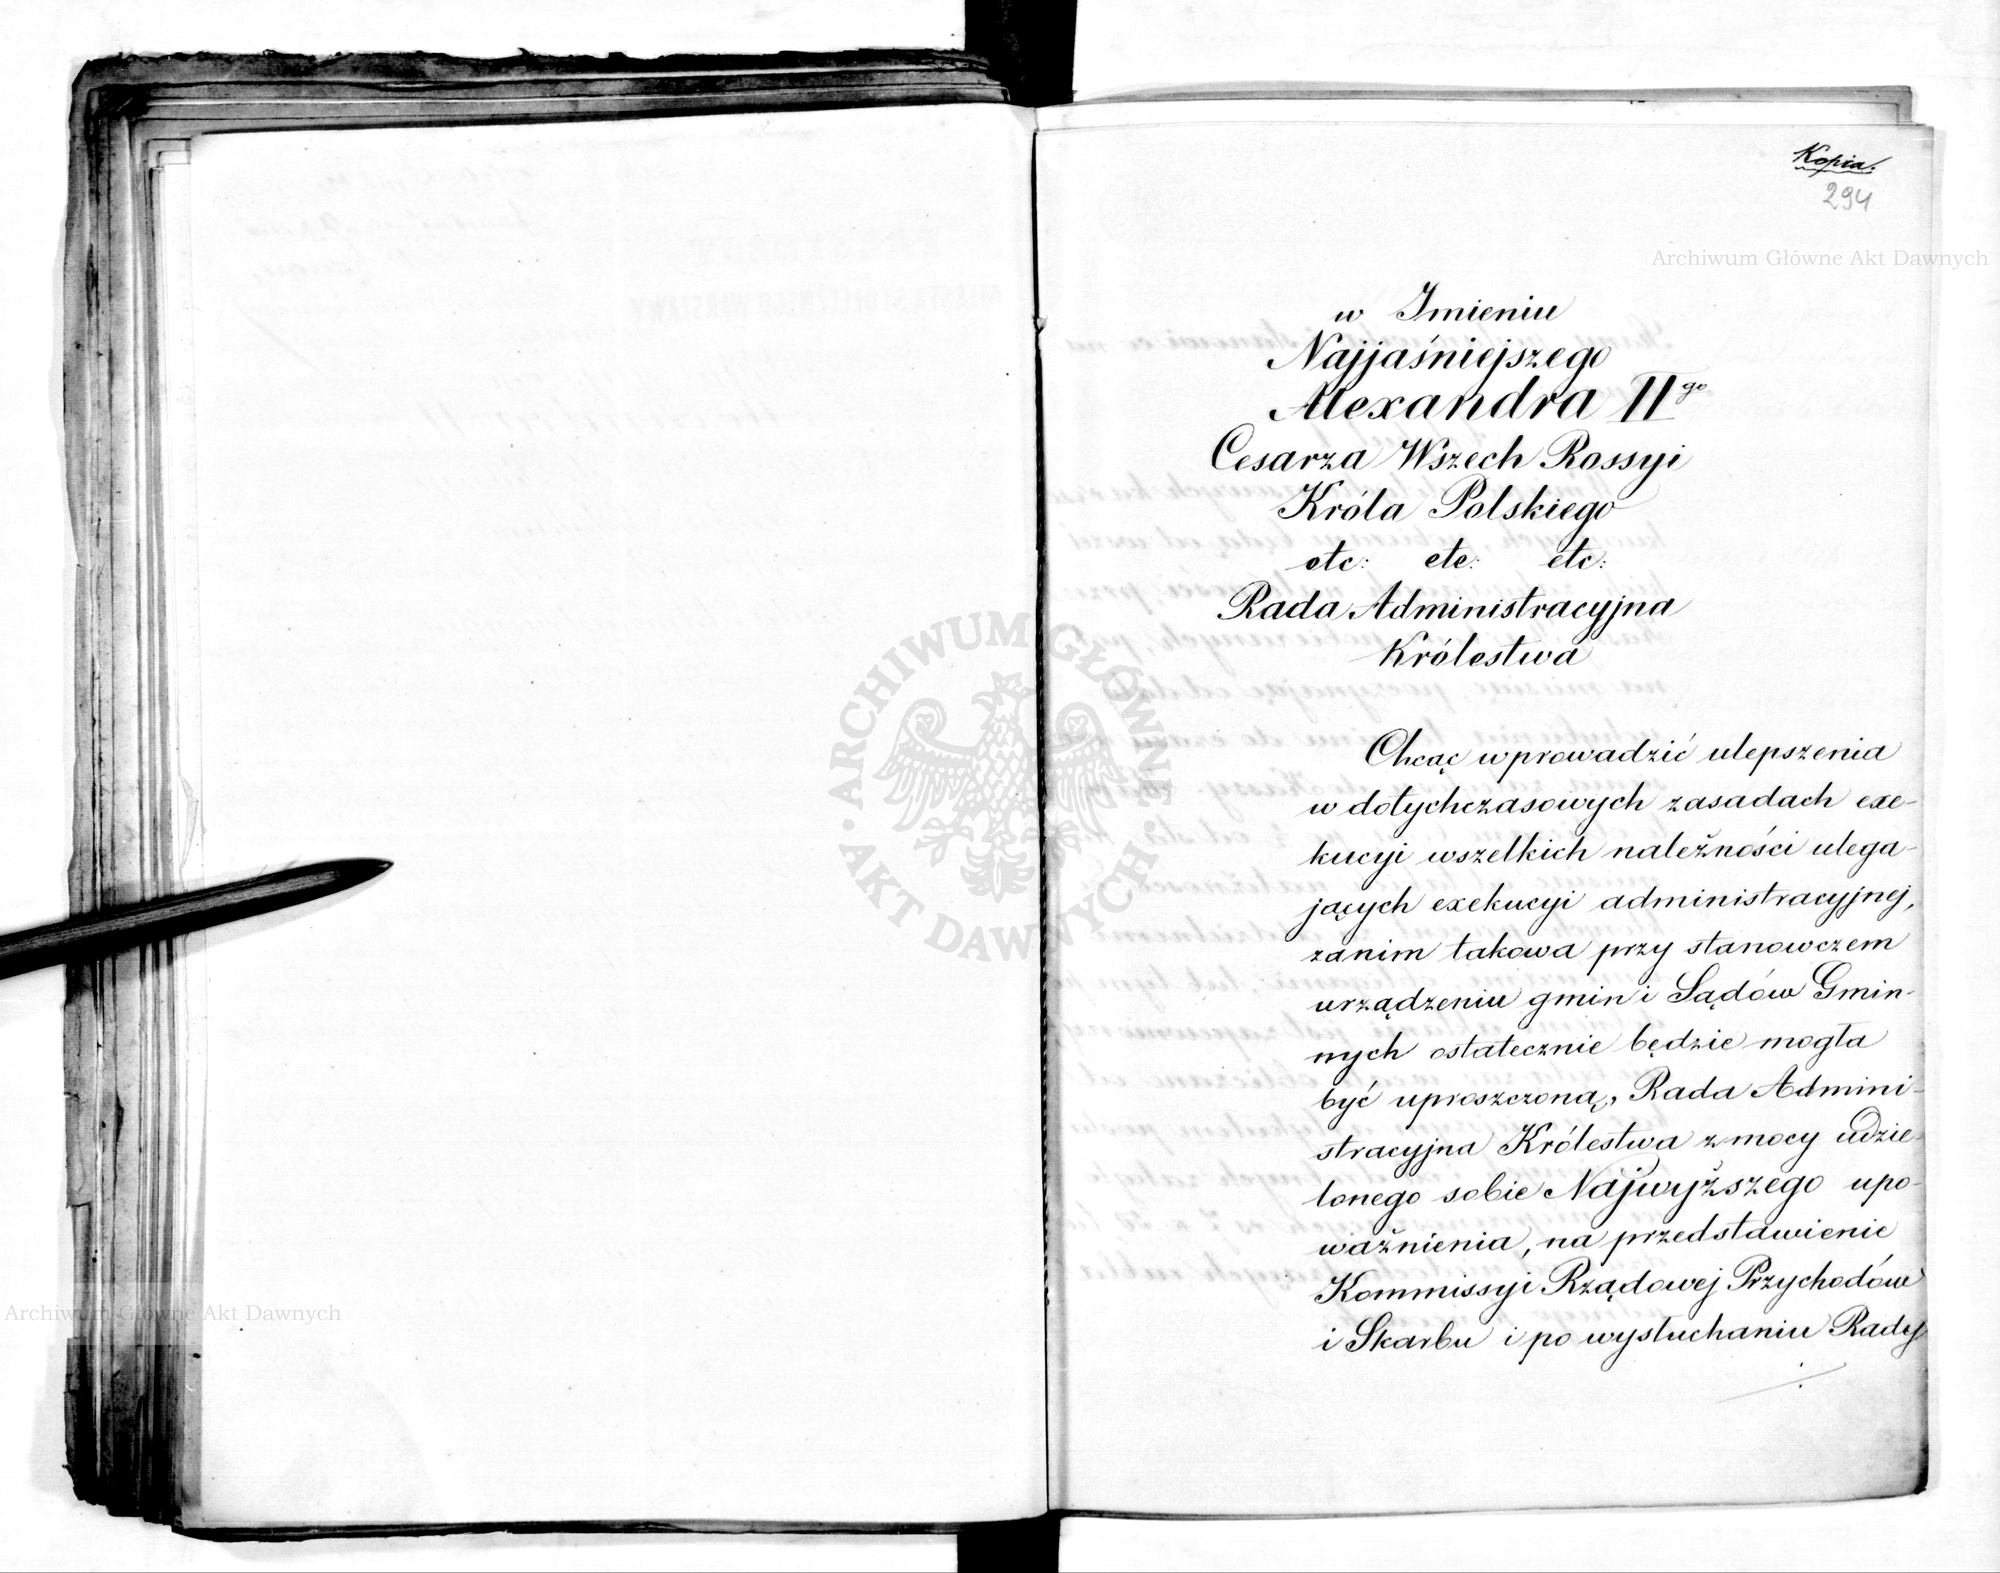 Kopia.
294
Archiwum Główne Akt Dawnych
w Imieniu
Najjaśniejszego
Alexandra IIgo
Cesarza Wszech Rossyi
Króla Polskiego
etc: etc: etc:
Rada Administracyjna
Królestwa
ARCHIWUM GŁÓWNE
AKT DAWNYCH
Chcąc wprowadzić ulepszenia
w dotychczasowych zasadach exe-
kucyi wszelkich należności ulega-
jących exekucyi administracyjnej,
zanim takowa przy stanowczem
urządzeniu gmin i Sądów Gmin-
nych ostatecznie będzie mogła
być uproszczoną, Rada Admini-
stracyjna Królestwa z mocy udzie-
lonego sobie Najwyższego upo-
ważnienia, na przedstawienie
Kommissyi Rządowej Przychodów
i Skarbu i po wysłuchaniu Rady
Archiwum Główne Akt Dawnych